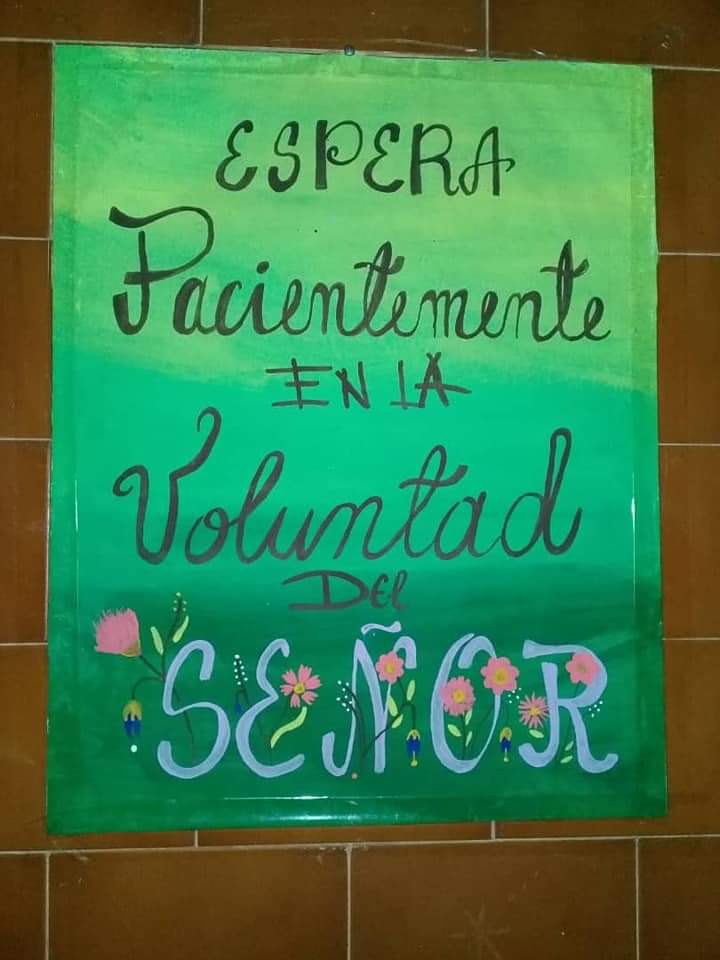 ESPERA
Pacientemente
EN LA
Voluntad
DEL
SEÑOR